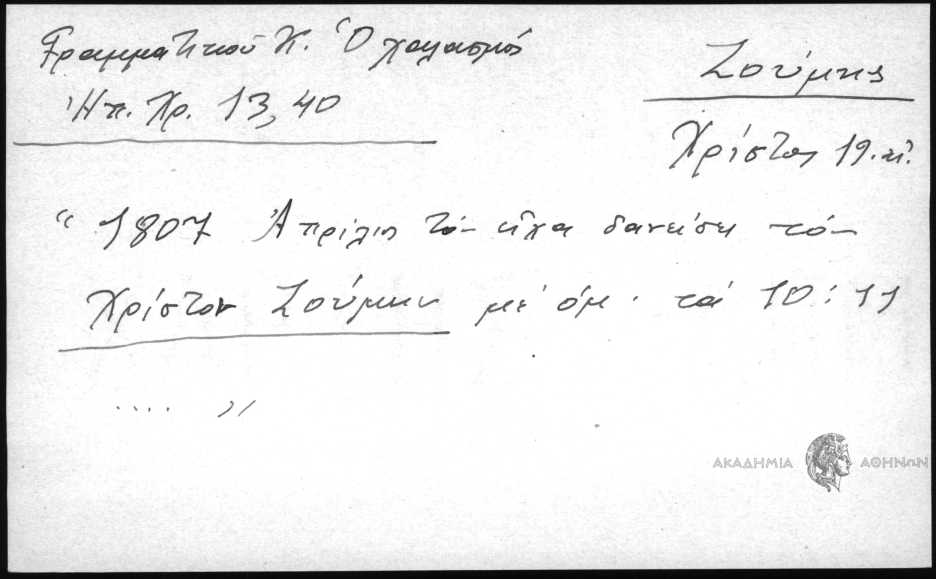 Γραμματικού Κ. Ὁ χαλασμός
Ἠπ. Χρ. 13, 40
Ζούμης
Χρίστος 19. αἰ.
“ 1807 Ἀπρίλιος τὸν εἶχα δανείσει τὸν
Χρίστον Ζούμην μὲ ὁμ. τά 10 : 11
.... ”
ΑΚΑΔΗΜΙΑ ΑΘΗΝΩΝ